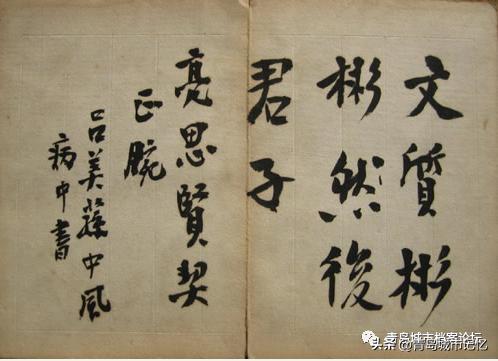 文質彬
彬然後
君子
亮思賢契
正腕
呂美蓀中風
病中書
青岛城市档案论坛
头条 @青岛城市记忆